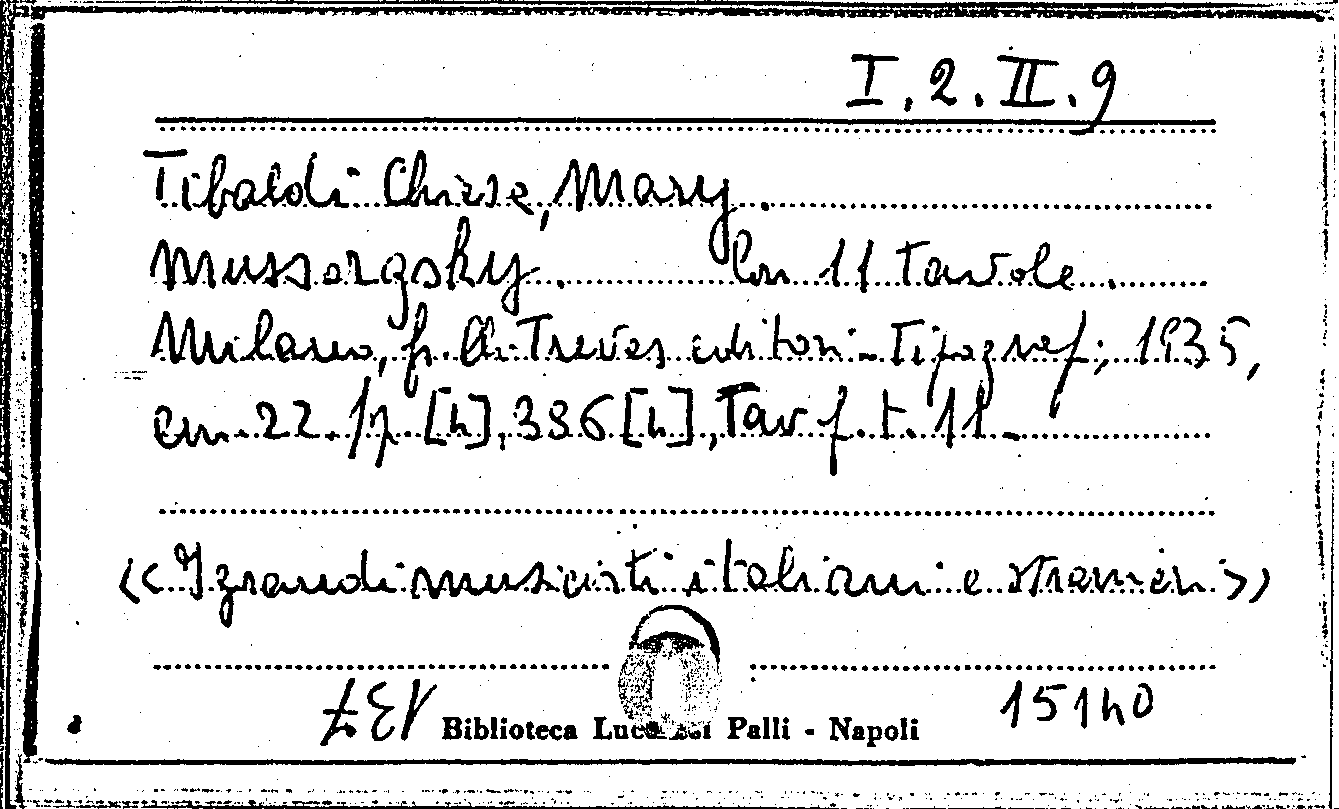 I.2.II.9
Tibaldi Chiesa, Mary.
Mussorgsky. Con 11 tavole.
Milano, f. lli Treves editori-Tipograf; 1935,
cm. 22. p. [4], 386 [4], Tav f. t. 11-
«I grandi musicisti italiani e stranieri»
Biblioteca Lucchesi Palli - Napoli
15140